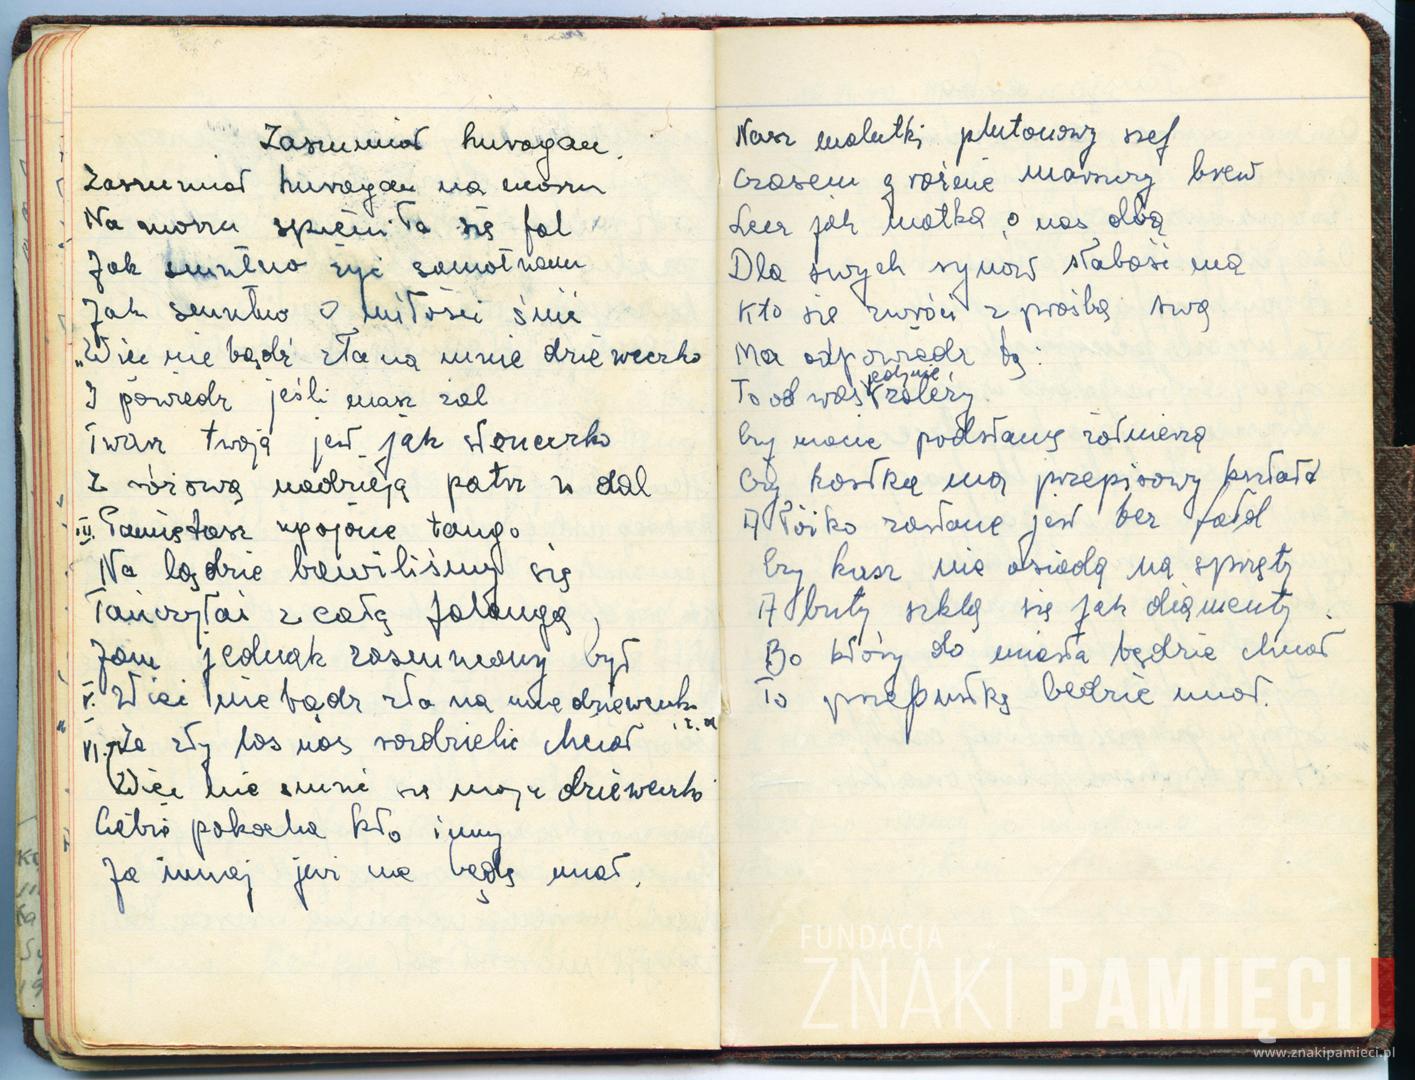 Zaszumiał huragan.
Zaszumiał huragan na morzu
Na morzu spieniła się fal
Jak smutno żyć samotnemu
Jak smutno o miłości śnić
„Więc nie bądź zła na mnie dzieweczko
I powiedz jeśli masz żal
Twarz twoja jest jak słoneczko
Z różową nadzieją patrz w dal
III. Pamiętasz upojne tango
Na lądzie bawiliśmy się
Tańczyłaś z całą falangą
Jam jednak zasumowany był
V. Więc nie bądź zła na mnie dzieweczko
VI. Że zły los nas rozdzielić chciał
Więc nie smuć się moja dzieweczko
Ciebie pokocha kto inny
Ja innej już nie będę miał.
Nasz malutki plutonowy szef
Czasem groźnie marszczy brew
Lecz jak matka o nas dba
Dla swych synów słabość ma
Kto się zwróci z prośbą swą
Ma odpowiedź tą.
To od was jedynie zależy
Czy macie podstawę żołnierza
Czy kostka ma przepisowy kształt
A łóżko zasłane jest bez fałd
Czy kurz nie osiada na sprzęty
A buty szklą się jak diamenty.
Bo który do miasta będzie chciał
To przepustkę będzie miał.
FUNDACJA
ZNAKI PAMIĘCI
www.znakipamieci.pl